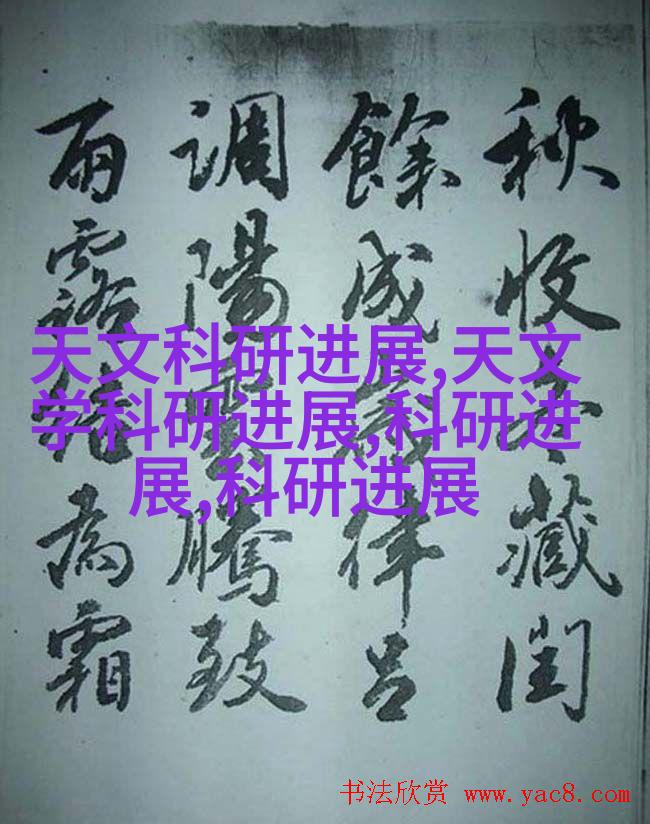 秋收冬藏閏
餘成歲律呂
調陽雲騰致
雨露結為霜
天文科研进展,天文
学科研进展,科研进
展,科研进展
书法欣赏 www.yac8.com